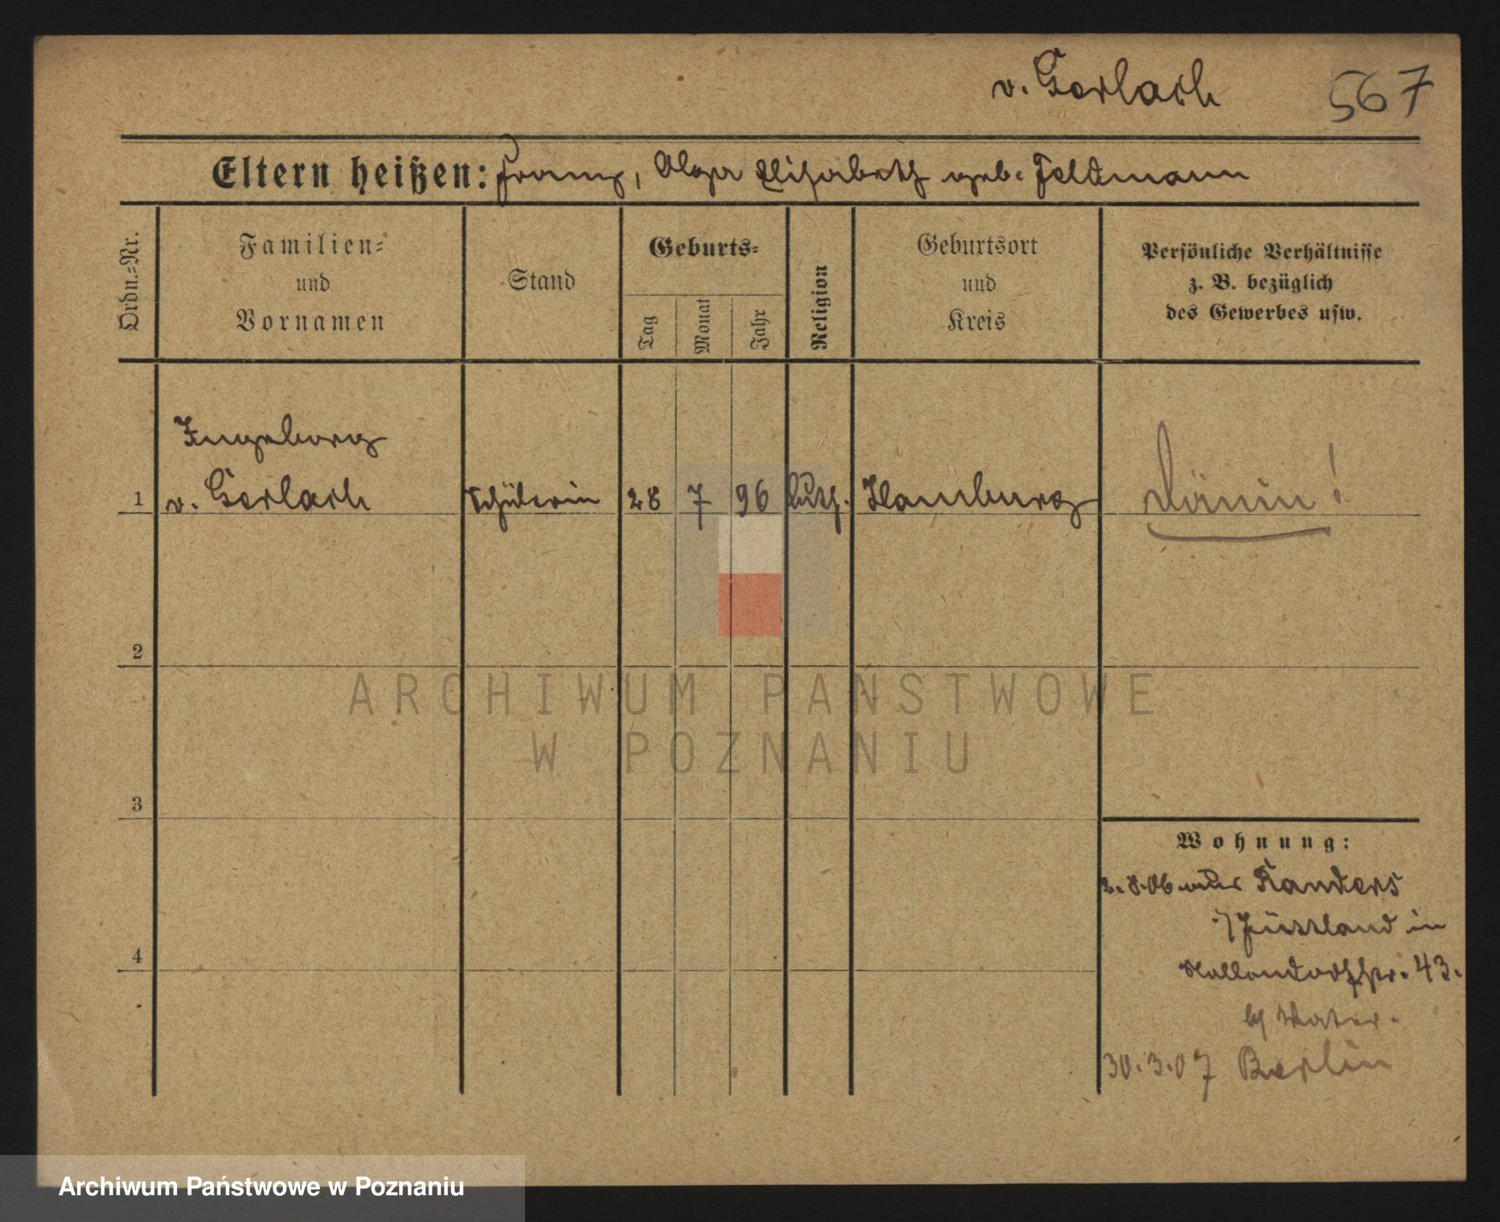 v. Gerlach 567
Eltern heißen: Franz, Olga Elisabeth geb. Feldmann
Ordn.=Nr.
Familien=
und
Vornamen
Stand
Geburts=
Tag
Monat
Jahr
Religion
Geburtsort
und
Kreis
Persönliche Verhältnisse
z. B. bezüglich
des Gewerbes usw.
Ingeborg
1 v. Gerlach Schülerin 28 7 96 luth. Hamburg Dänin!
2
3
4
Wohnung:
2.8.06 Randers
i/Jüttland in
Hallandorfstr. 43.
b/ Vater.
30.3.07 Berlin
ARCHIWUM PAŃSTWOWE
W POZNANIU
Archiwum Państwowe w Poznaniu